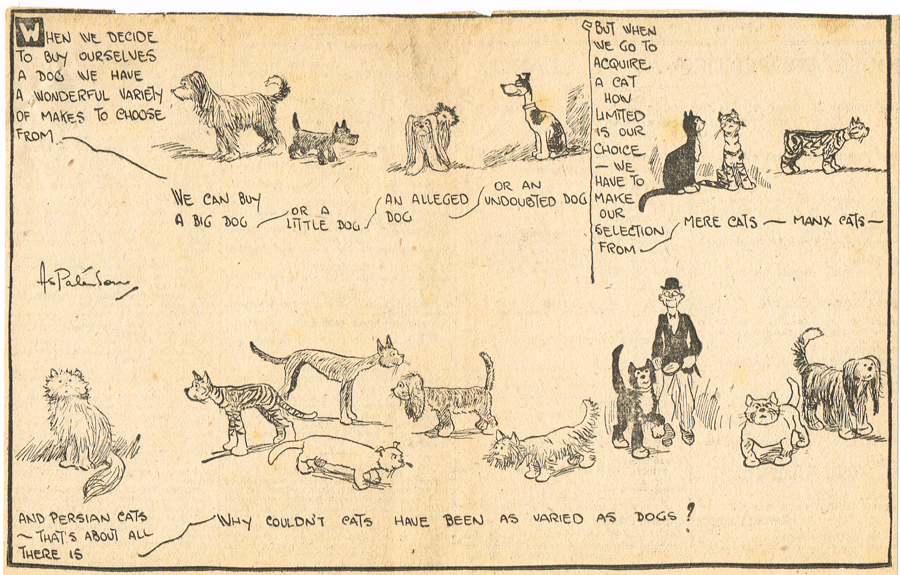 WHEN WE DECIDE
TO BUY OURSELVES
A DOG WE HAVE
A WONDERFUL VARIETY
OF MAKES TO CHOOSE
FROM
WE CAN BUY
A BIG DOG
OR A
LITTLE DOG
AN ALLEGED
DOG
OR AN
UNDOUBTED DOG
BUT WHEN
WE GO TO
ACQUIRE
A CAT
HOW
LIMITED
IS OUR
CHOICE
— WE
HAVE TO
MAKE
OUR
SELECTION
FROM
MERE CATS —
MANX CATS —
AND PERSIAN CATS
— THAT'S ABOUT ALL
THERE IS
WHY COULDN'T CATS HAVE BEEN AS VARIED AS DOGS?